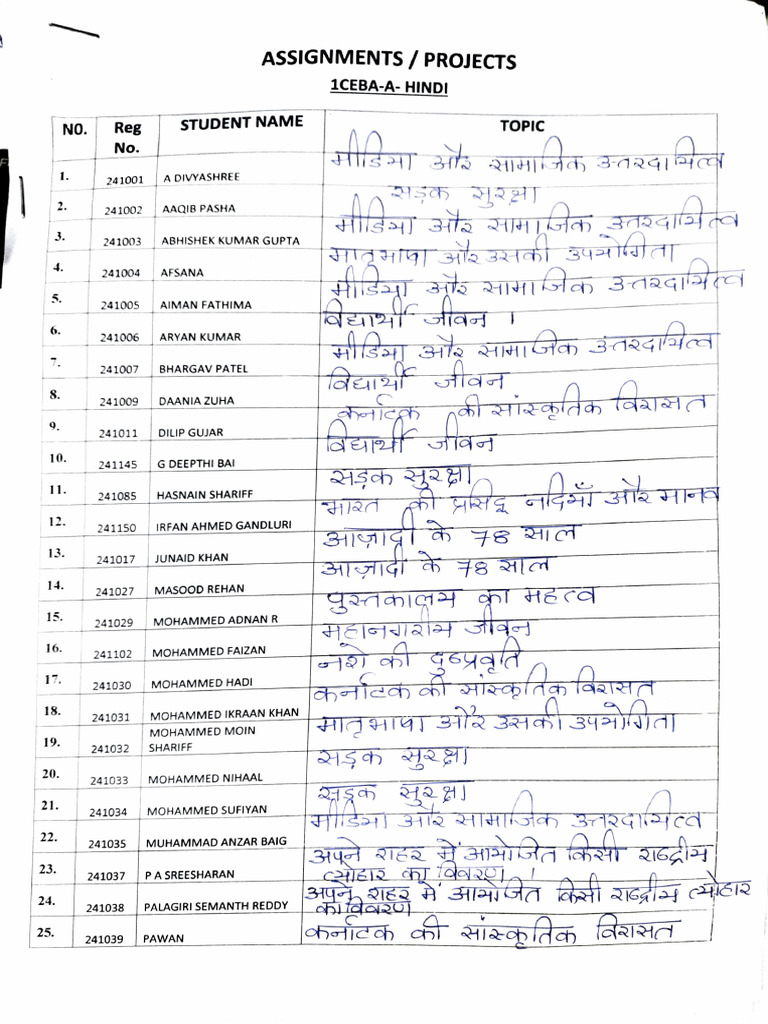 ASSIGNMENTS / PROJECTS
1CEBA-A- HINDI
N0. Reg No. STUDENT NAME TOPIC
1. 241001 A DIVYASHREE मीडिया और सामाजिक उत्तरदायित्व
2. 241002 AAQIB PASHA सड़क सुरक्षा
3. 241003 ABHISHEK KUMAR GUPTA मीडिया और सामाजिक उत्तरदायित्व
4. 241004 AFSANA मातृभाषा और उसकी उपयोगिता
5. 241005 AIMAN FATHIMA मीडिया और सामाजिक उत्तरदायित्व
6. 241006 ARYAN KUMAR विद्यार्थी जीवन ।
7. 241007 BHARGAV PATEL मीडिया और सामाजिक उत्तरदायित्व
8. 241009 DAANIA ZUHA विद्यार्थी जीवन
9. 241011 DILIP GUJAR कर्नाटक की सांस्कृतिक विरासत
10. 241145 G DEEPTHI BAI विद्यार्थी जीवन
11. 241085 HASNAIN SHARIFF सड़क सुरक्षा
12. 241150 IRFAN AHMED GANDLURI भारत की प्रसिद्ध नदियाँ और मानव
13. 241017 JUNAID KHAN आज़ादी के 78 साल
14. 241027 MASOOD REHAN आज़ादी के 78 साल
15. 241029 MOHAMMED ADNAN R पुस्तकालय का महत्व
16. 241102 MOHAMMED FAIZAN महानगरीय जीवन
17. 241030 MOHAMMED HADI नशे की दुष्प्रवृति
18. 241031 MOHAMMED IKRAAN KHAN कर्नाटक की सांस्कृतिक विरासत
19. 241032 MOHAMMED MOIN SHARIFF मातृभाषा और उसकी उपयोगिता
20. 241033 MOHAMMED NIHAAL सड़क सुरक्षा
21. 241034 MOHAMMED SUFIYAN सड़क सुरक्षा
22. 241035 MUHAMMAD ANZAR BAIG मीडिया और सामाजिक उत्तरदायित्व
23. 241037 P A SREESHARAN अपने शहर में आयोजित किसी राष्ट्रीय
त्योहार का विवरण ।
24. 241038 PALAGIRI SEMANTH REDDY अपने शहर में आयोजित किसी राष्ट्रीय त्योहार
का विवरण
25. 241039 PAWAN कर्नाटक की सांस्कृतिक विरासत